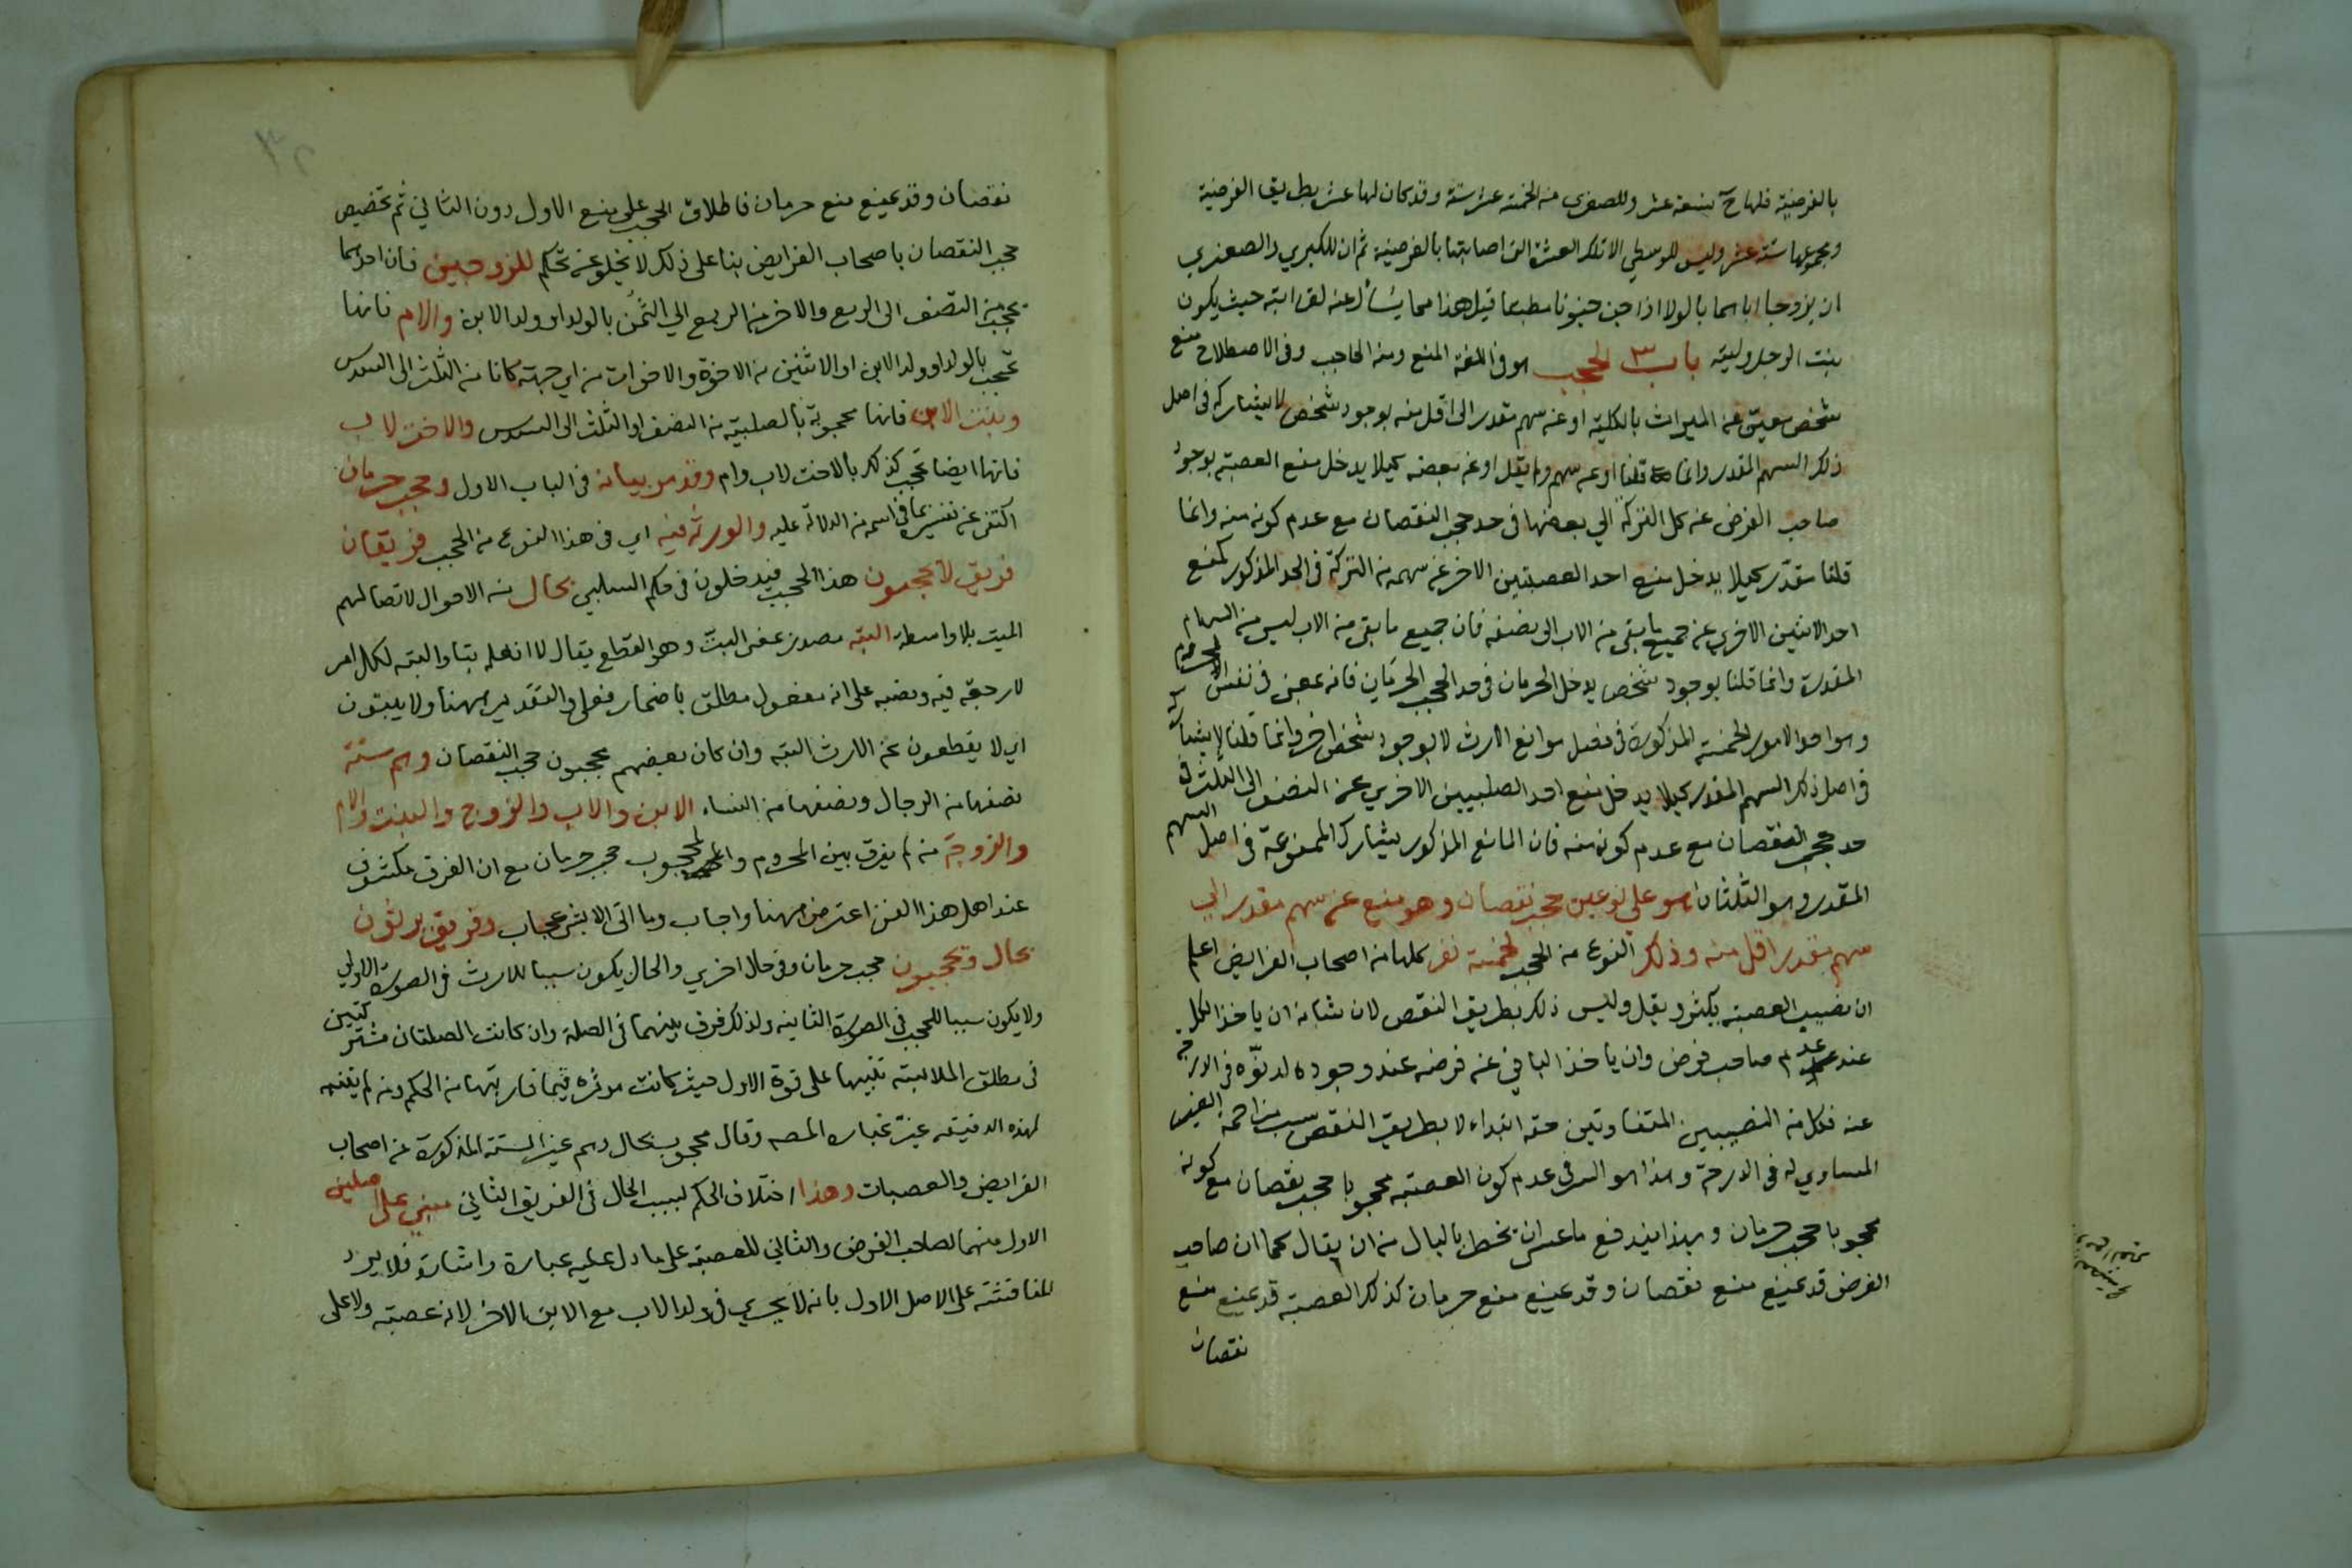 بالفرضية فلها ح تسعة عشر وللصغرى من الخمسة عشر ستة وقد كان لها عشر بطريق الفرضية
ومجموعها ستة عشر وليس للوسطي الا تلك العشرة التى اصابتها بالفرضية ثم ان للكبري والصغري
ان يزوجا اباهما بالولاء اذا جن جنونا مطبقا قيل هذا مما يسأل عنه لقرابته حيث يكون
بنت الرجل وليته باب الحجب هو فى اللغة المنع ومنه الحاجب وفى الاصطلاح منع
شخص معين عن الميراث بالكلية او عن سهم مقدر الى اقل منه بوجود شخص لا يشاركه فى اصل
ذلك السهم المقدر وانما قلنا او عن سهم ولم يقل او عن بعضه كيلا يدخل منع العصبة بوجود
صاحب الفرض عن كل التركة الي بعضها فى حد حجب النقصان مع عدم كونه منه وانما
قلنا مقدر كيلا يدخل منع احد العصبتين الاخر عن سهمه من التركة فى الحد المذكور كمنع
احد الاثنين الاخري عن جميع ما بقى من الاب الى نصفه فان جميع ما بقى من الاب ليس من السهام
المقدرة وانما قلنا بوجود شخص يدخل الحرمان فى حد الحجب الحرمان فانه بمعنى فى نفس المحروم
وهو احد الامور الخمسة المذكورة فى فصل موانع الارث لا بوجود شخص اخر وانما قلنا لا يشاركه
فى اصل ذلك السهم المقدر كيلا يدخل منع احد الصلبيتين الاخري عن النصف الى الثلث فى
حد حجب النقصان مع عدم كونه منه فان المانع المذكور يشارك الممنوعة فى اصل السهم
المقدر وهو الثلثان هو على نوعين حجب نقصان وهو منع عن سهم مقدر الي
سهم مقدر اقل منه وذلك النوع من الحجب لخمسة نفر كلها من اصحاب الفرايض اعلم
ان نصيب العصبة يكثر ويقل وليس ذلك بطريق النقص لان شانه ان ياخذ الكل
عند عدم صاحب فرض وان ياخذ الباقي عن فرضه عند وجوده لدنوه فى الارجحية
عنه فكل من النصيبين المتفاوتين حقه ابتداء لا بطريق النقص بسبب مزاحمة الغير
المساوي له فى الارحة وهذا هو السر فى عدم كون العصبة محجوبا حجب نقصان مع كونه
محجوبا حجب حرمان وبهذا يندفع ما عسى ان يخطر بالبال من ان يقال كما ان صاحب
الفرض قد يمنع منع نقصان وقد يمنع منع حرمان كذلك العصبة قد يمنع منع
نقصان
نقصان وقد يمنع منع حرمان فاطلاق الحجب على منع الاول دون الثاني ثم تخصيص
حجب النقصان باصحاب الفرايض بناء على ذلك لا يخلو عن تحكم للزوجين فان احدهما
يحجب من النصف الى الربع والاخر من الربع الي الثمن بالولد او ولد الابن والام فانها
تحجب بالولد او ولد الابن او الاثنين من الاخوة والاخوات من اي جهة كانا من الثلث الى السدس
وبنت الابن فانها محجوبة بالصلبية من النصف او الثلث الى السدس والاخت لاب
فانها ايضا تحجب كذلك بالاخت لاب وام وقد مر بيانه فى الباب الاول وحجب حرمان
اكتفى عن تفسيره بما فى اسمه من الدلالة عليه والورثة فيه اي فى هذا النوع من الحجب فريقان
فريق لا يحجبون هذا الحجب فيدخلون فى حكم السلبى بحال من الاحوال لاتصالهم
الميت بلا واسطة البتة مصدر بمعنى البت وهو القطع يقال لا افعله بتا والبتة لكل امر
لا رجعة فيه ونصبه على انه مفعول مطلق باضمار فعل والتقدير ههنا ولا يبتون
اي لا يقطعون عن الارث البتة وان كان بعضهم يحجبون حجب النقصان وهم ستة
نصفها من الرجال ونصفها من النساء الابن والاب والزوج والبنت والام
والزوجة من لم يفرق بين المحروم والمحجوب حجب حرمان مع ان الفرق مكشوف
عند اهل هذا الفن اعترض ههنا واجاب وما اتى الا بشئ عجاب وفريق يرثون
بحال ويحجبون حجب حرمان وفى حال اخري والحال يكون سببا للارث فى الصورة الاولي
ولا يكون سببا للحجب فى الصورة الثانية ولذلك فرق بينهما فى الصلة وان كانت الصلتان مشتركتين
فى مطلق الملابسة تنبيها على قوة الاول حيث كانت موثره فيما قاربتها من الحكم ومن لم يتنبه
لهذه الدقيقة غير عبارة المصه وقال محجوب بحال وهم غير الستة المذكورة من اصحاب
الفرايض والعصبات وهذا اختلاف الحكم لسبب الحال فى الفريق الثاني مبني على اصلين
الاول منهما لصاحب الفرض والثاني للعصبة على ما دل عليه عبارة واشارة فلا يرد
المناقشة على الاصل الاول بانه لا يجري فى ولد الاب مع الابن الاخر لانه عصبة ولا على